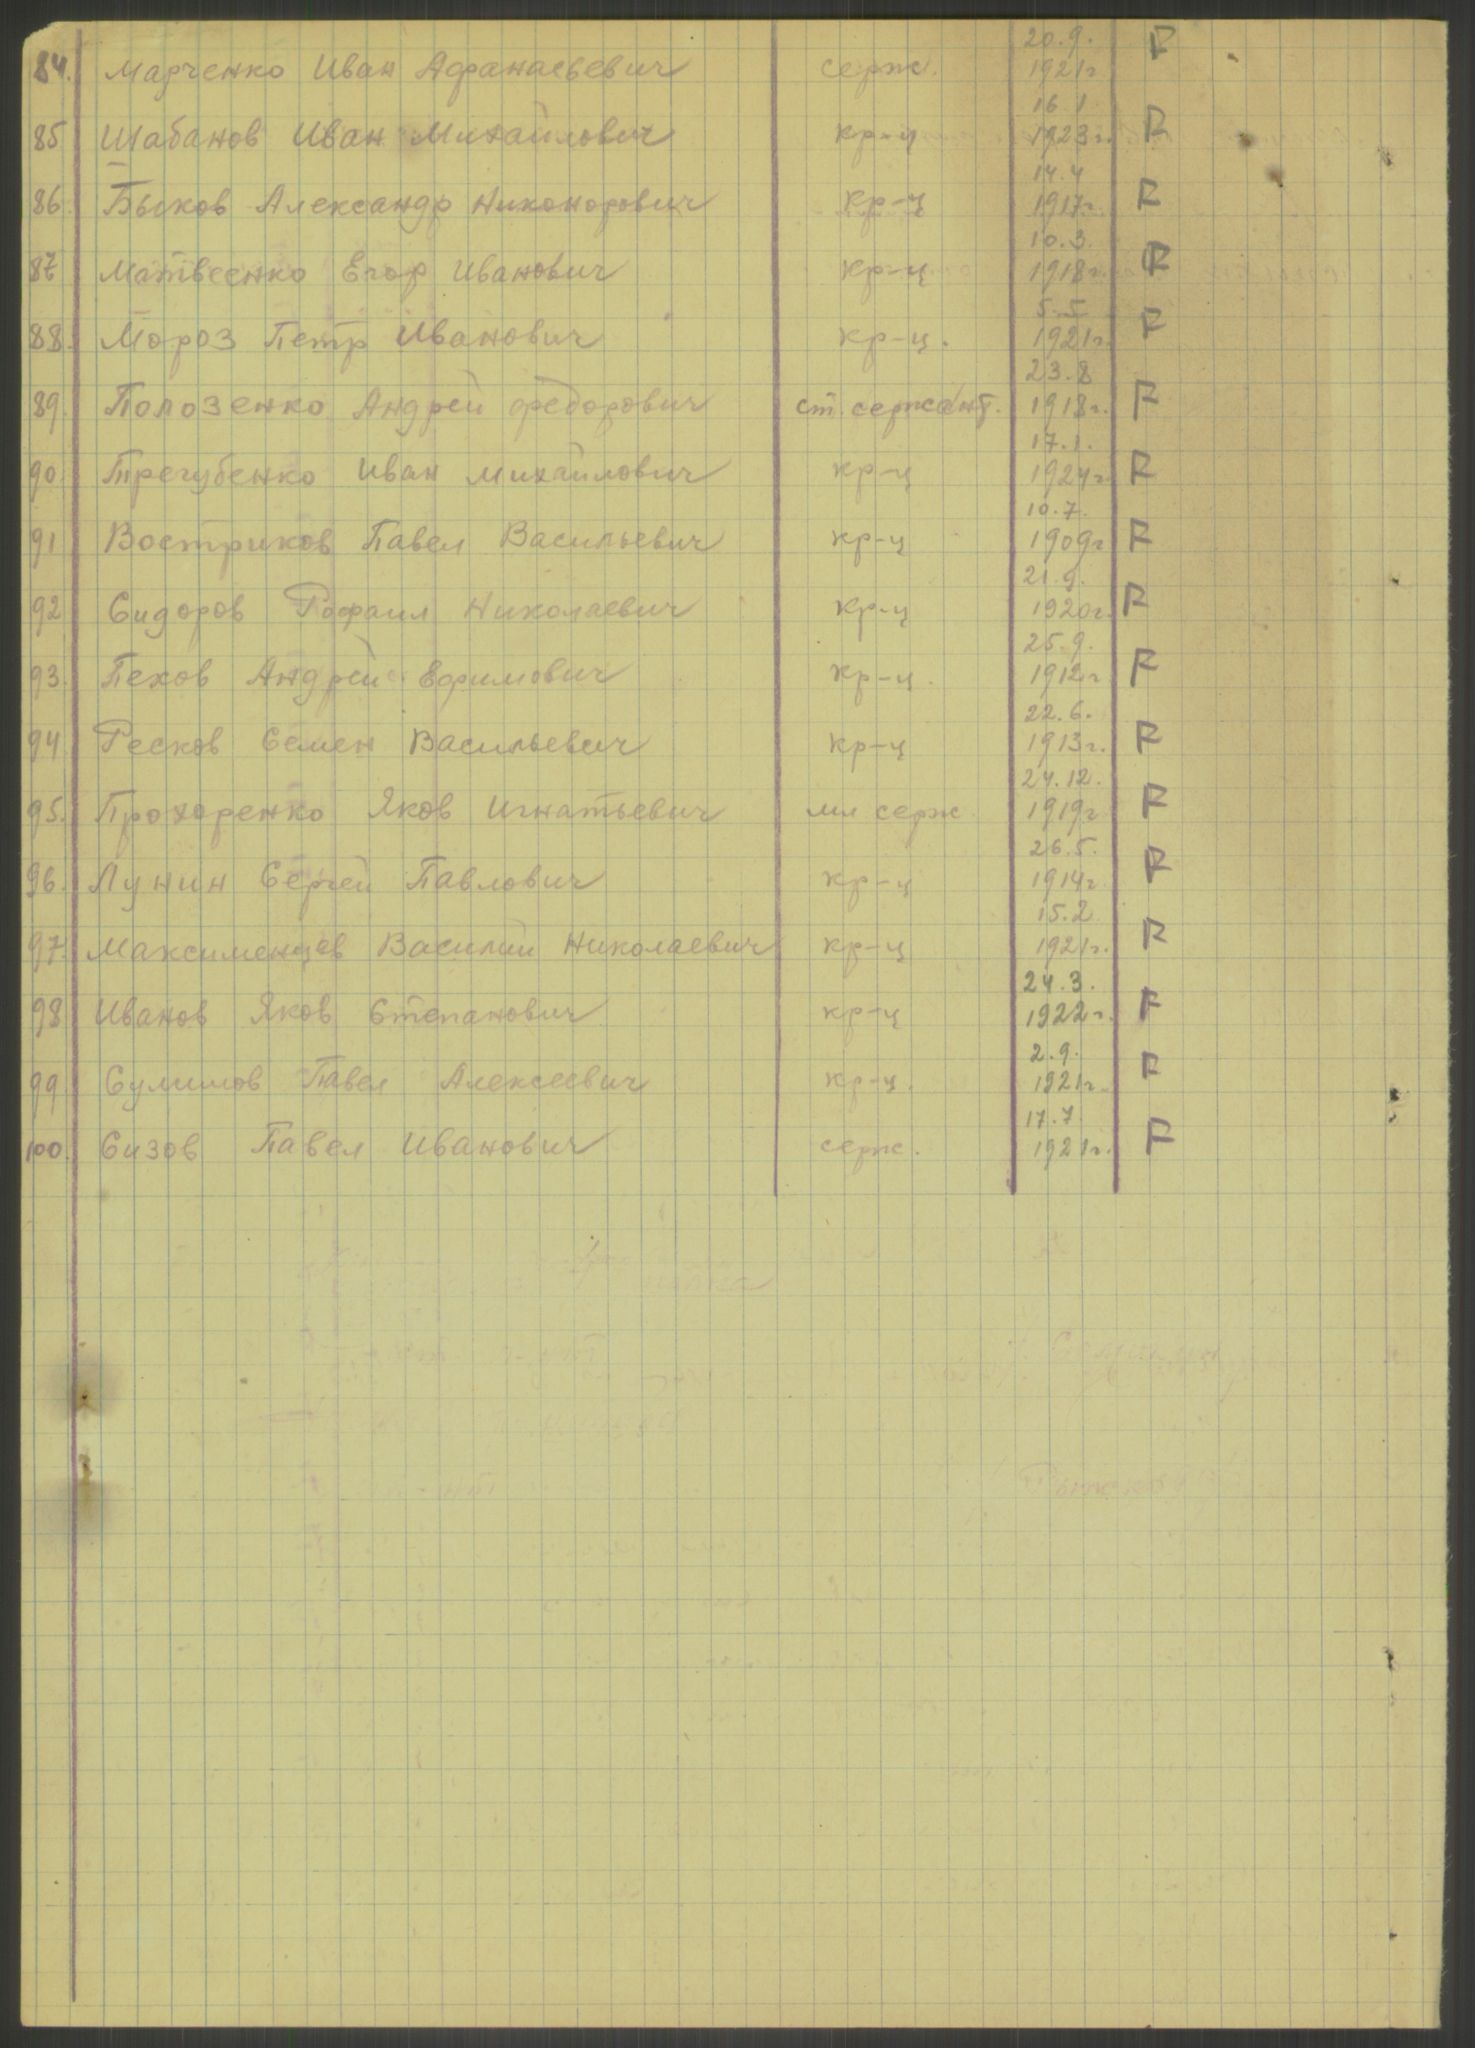 84. Марченко Иван Афанасьевич серж. 20.9. 1921г F
85 Шабанов Иван Михайлович кр-ц 16.1 1923г. F
86. Быков Александр Никонорович кр-ц 14.4 1917г. F
87 Матвеенко Егор Иванович кр-ц 10.3. 1918г. F
88. Мороз Петр Иванович кр-ц. 5.5 1921г. F
89. Полозенко Андрей Федорович ст. сержант. 23.8 1918г. F
90 Трегубенко Иван Михайлович кр-ц 17.1. 1924г. F
91 Востриков Павел Васильевич кр-ц 10.7. 1909г F
92 Сидоров Рафаил Николаевич кр-ц 21.9. 1920г. F
93. Пехов Андрей Ефимович кр-ц. 25.9. 1912г F
94. Ресков Семен Васильевич кр-ц 22.6. 1913г. F
95. Прохоренко Яков Игнатьевич мл серж 24.12. 1919г F
96. Лунин Сергей Павлович кр-ц 26.5. 1914г F
97. Максименцев Василий Николаевич кр-ц 15.2. 1921г. F
98 Иванов Яков Степанович кр-ц 24.3. 1922г. F
99. Сулимов Павел Алексеевич кр-ц. 2.9. 1921г. F
100. Сизов Павел Иванович серж. 17.7 1921г. F